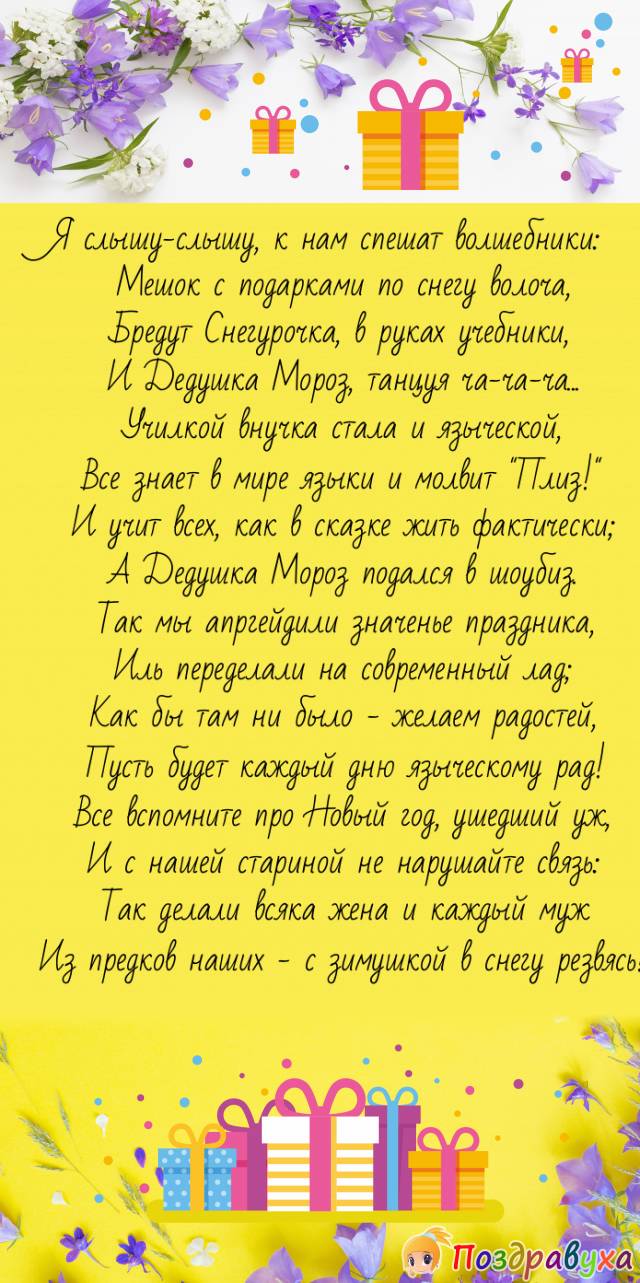 Я слышу-слышу, к нам спешат волшебники:
Мешок с подарками по снегу волоча,
Бредут Снегурочка, в руках учебники,
И Дедушка Мороз, танцуя ча-ча-ча...
Училкой внучка стала и языческой,
Все знает в мире языки и молвит "Плиз!"
И учит всех, как в сказке жить фактически;
А Дедушка Мороз подался в шоубиз.
Так мы апргейдили значенье праздника,
Иль переделали на современный лад;
Как бы там ни было - желаем радостей,
Пусть будет каждый дню языческому рад!
Все вспомните про Новый год, ушедший уж,
И с нашей стариной не нарушайте связь:
Так делали всяка жена и каждый муж
Из предков наших - с зимушкой в снегу резвясь!
Поздравуха